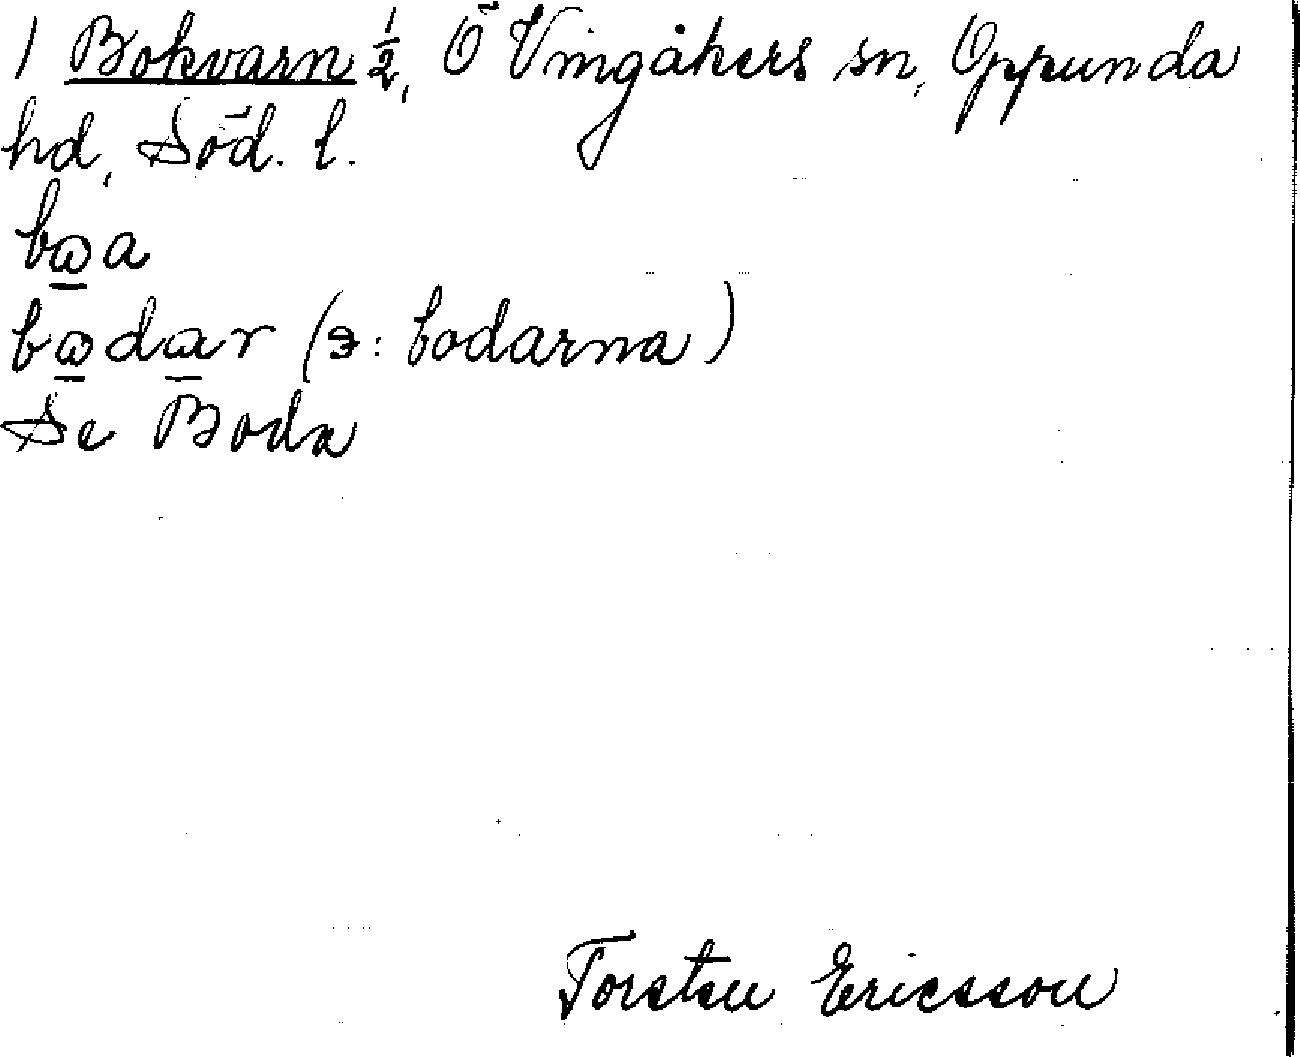 1 Bokvarn ½, Ö Vingåkers sn, Oppunda
hd, Söd. l.
bɷ̲a
bɷ̲da̲r (ɜ: bodarna)
Se Boda
Torsten Ericsson